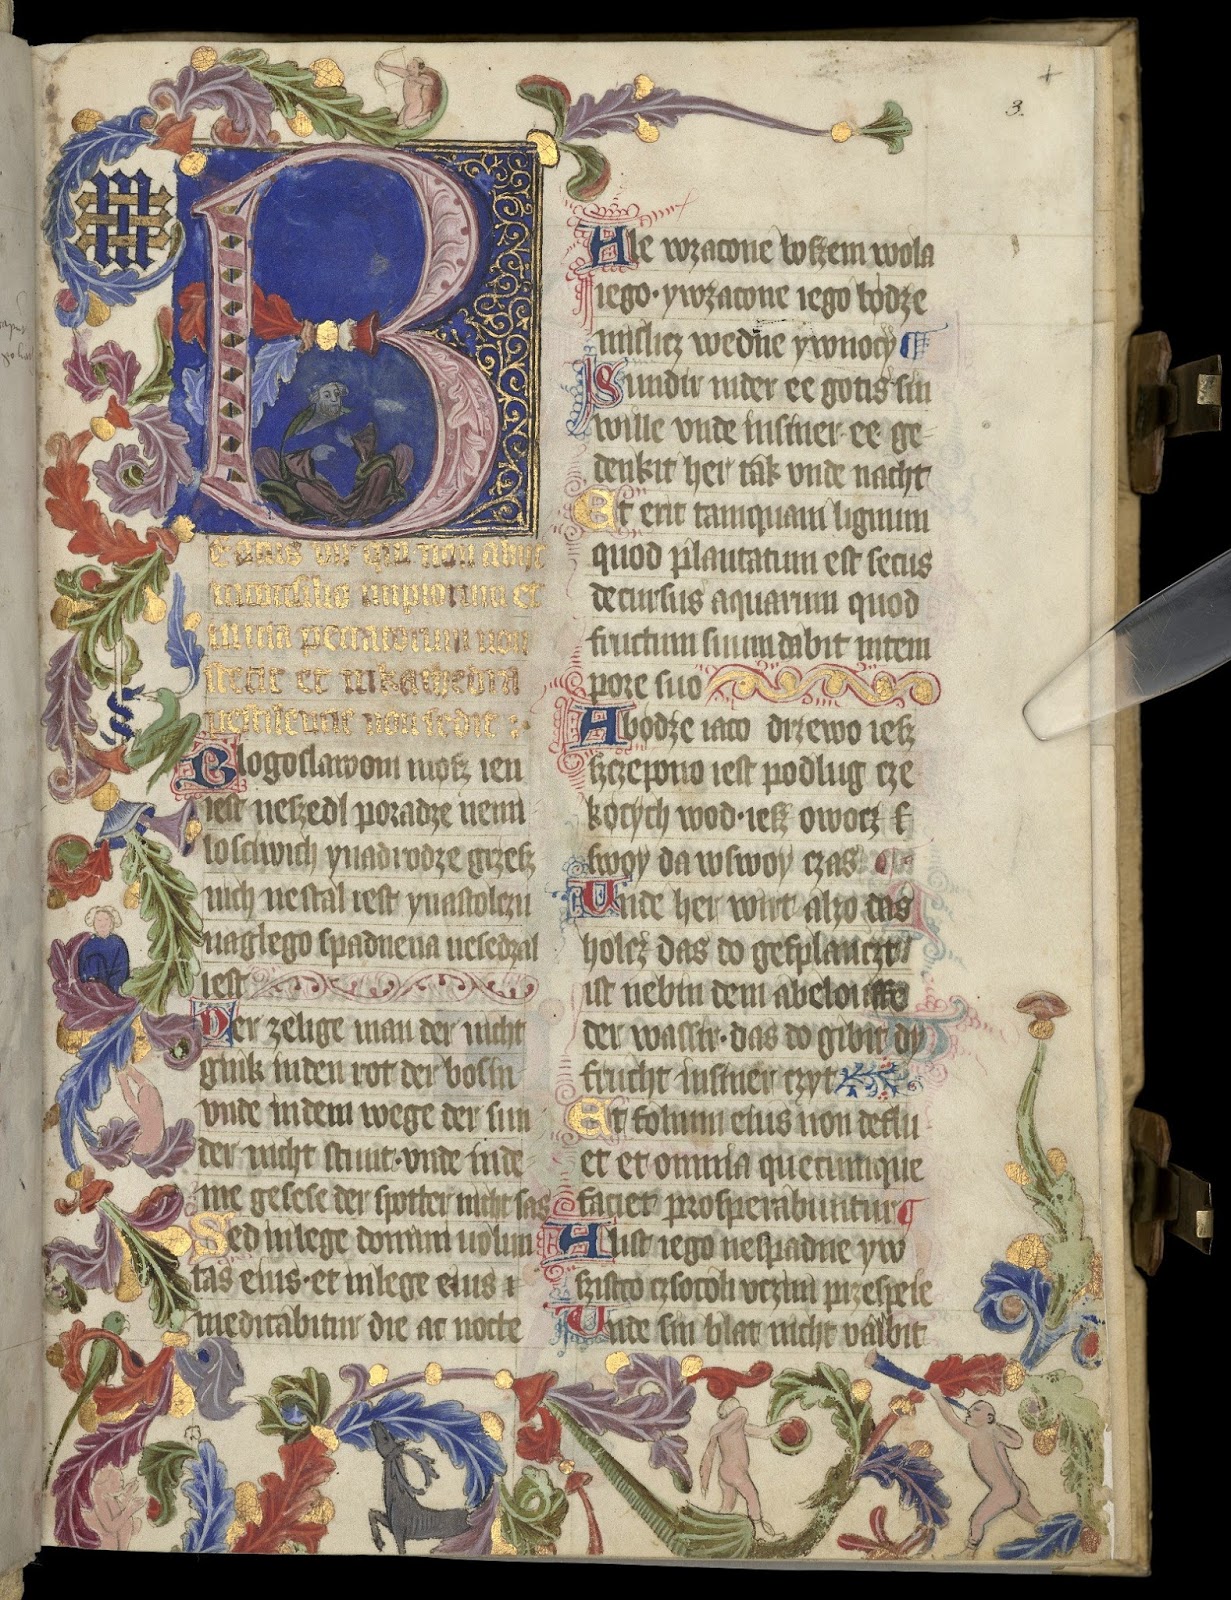 3.
Beatus vir qui non abyt
in consilio impiorum et
in via peccatorum non
stetit et in kathedra
pestilencie non sedit :
Blogoslawoni møsz ien
iest neszedl poradze nemi
losciwich ynadrodze grzesz
nich nestal iest ynastolczu
naglego spadnena nesedzal
iest
Der zelige man der nicht
gink inden rot der bosin
vnde indem wege der sun
der nicht stunt·vnde inde
me gesese der spotter nicht sas
Sed in lege domini uolun
tas eius·et in lege eius
meditabitur die ac nocte
Ale wzacone boszem wola
iego·ywzacone iego bødze
mislicz wedne ywnocy
Sundir inder ee gotis sin
wille vnde insiner ee ge
denkit her tak vnde nacht
Et erit tamquam lignum
quod plantatum est secus
decursus aquarum quod
fructum suum dabit in tem
pore suo
A bødze iaco drzewo iesz
szczepono iest podlug cze
køcych wod·iesz owocz s
swoy da wswoy czas
Unde her wirt alzo das
holcz das do gesplanczt
ist nebin dem abelouffe
der wassir·das do gibit dy
frucht insiner czyt
Et folium eius non deflu
et et omnia quecumque
faciet prosperabuntur
A list iego nespadne yw
szistco czsocoli vczini przespeie
Unde sin blat nicht valbit